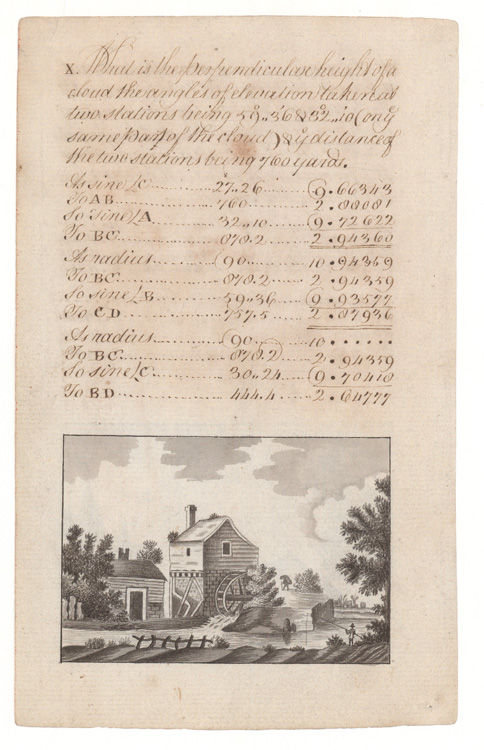 X. What is the perpendicular height of a
cloud the angles of elevation taken at
two stations being 59°.. 36 & 32°.. 10 (on y
same part of the cloud) & y distance of
the two stations being 760 yards.
As sine ∠C ........ 27.. 26 ...... 9 . 66343
To AB ........ 760 ........ 2 . 88081
So sine ∠A ........ 32 .. 10 ...... 9 . 72622
To BC ........ 878.2 ...... 2 . 94360
As radius ........ 90 ...... 10 . 94359
To BC ........ 878.2 ...... 2 . 94359
So sine ∠B ........ 59 .. 36 ...... 9 . 93577
To CD ........ 757.5 ...... 2 . 87936
As radius ........ 90 ...... 10 . . . . . .
To BC ........ 878.2 ...... 2 . 94359
So sine ∠C ........ 30 .. 24 ...... 9 . 70418
To BD ........ 444.4 ...... 2 . 64777